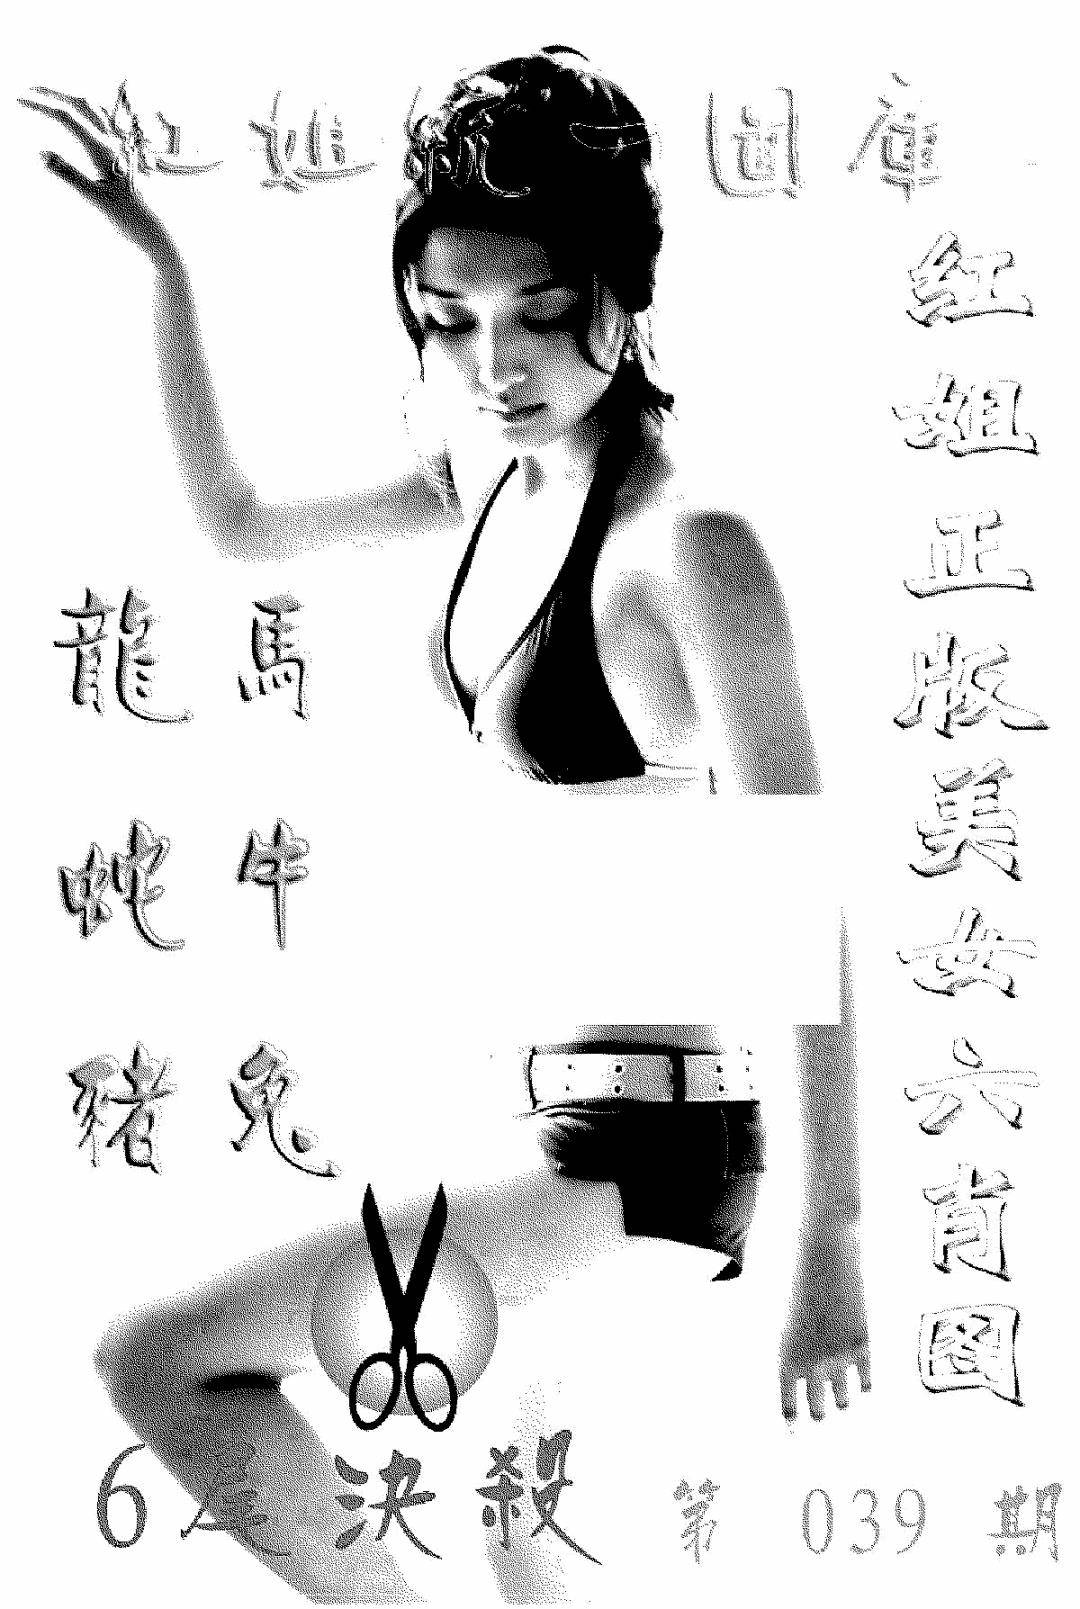 紅姐統一圖庫
紅姐正版美女六肖圖
龍 馬
蛇 牛
豬 兔
6尾決殺
第 039 期